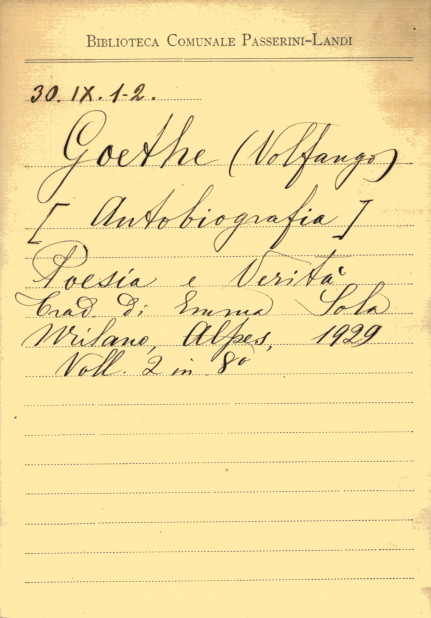 BIBLIOTECA COMUNALE PASSERINI-LANDI
30. IX. 1-2.
Goethe (Volfango)
[Autobiografia]
Poesia e Verità
Trad. di Emma Sola
Milano, Alpes, 1929
Voll. 2 in 8º